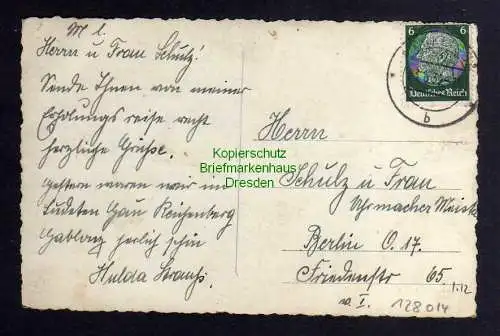 M l.
Herrn u Frau Schulz!
Sende Ihnen von meiner
Erholungsreise recht
herzliche Grüße.
Gestern waren wir im
Sudeten Gau Reichenberg
Gablonz herlich schön
Hulda Strauß.
6 6
Deutsches Reich
b
Kopierschutz
Briefmarkenhandel
Dresden
Herrn
Schulz u Frau
Uhrmacher Meister
Berlin O. 17.
Friedenstr 65.
I.
1.12
128014